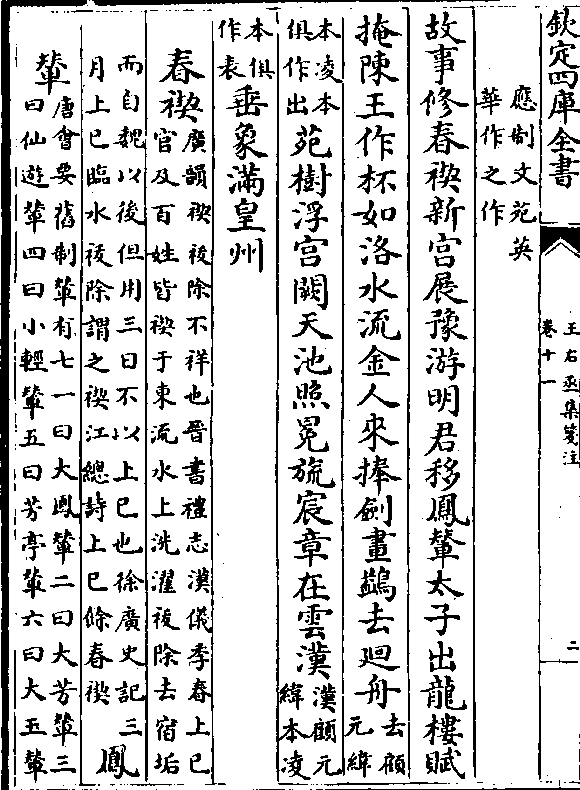 欽定四庫全書
王右丞集箋注
卷十一
二
應制文苑英
華作之作
故事修春禊新宮展豫游明君移鳳輦太子出龍樓賦
掩陳王作杯如洛水流金人來捧劍畫鷁去廻舟去顧
元緯
本凌本
俱作出苑樹浮宮闕天池照冕旒宸章在雲漢漢顧元
緯本凌
本俱
作表垂象滿皇州
春禊廣韻禊祓除不祥也晉書禮志漢儀季春上巳
官及百姓皆禊于東流水上洗濯祓除去宿垢
而自魏以後但用三日不以上巳也徐廣史記三
月上巳臨水祓除謂之禊江總詩上巳餘春禊鳳
輦唐會要舊制輦有七一曰大鳳輦二曰大芳輦三
曰仙遊輦四曰小輕輦五曰芳亭輦六曰大玉輦